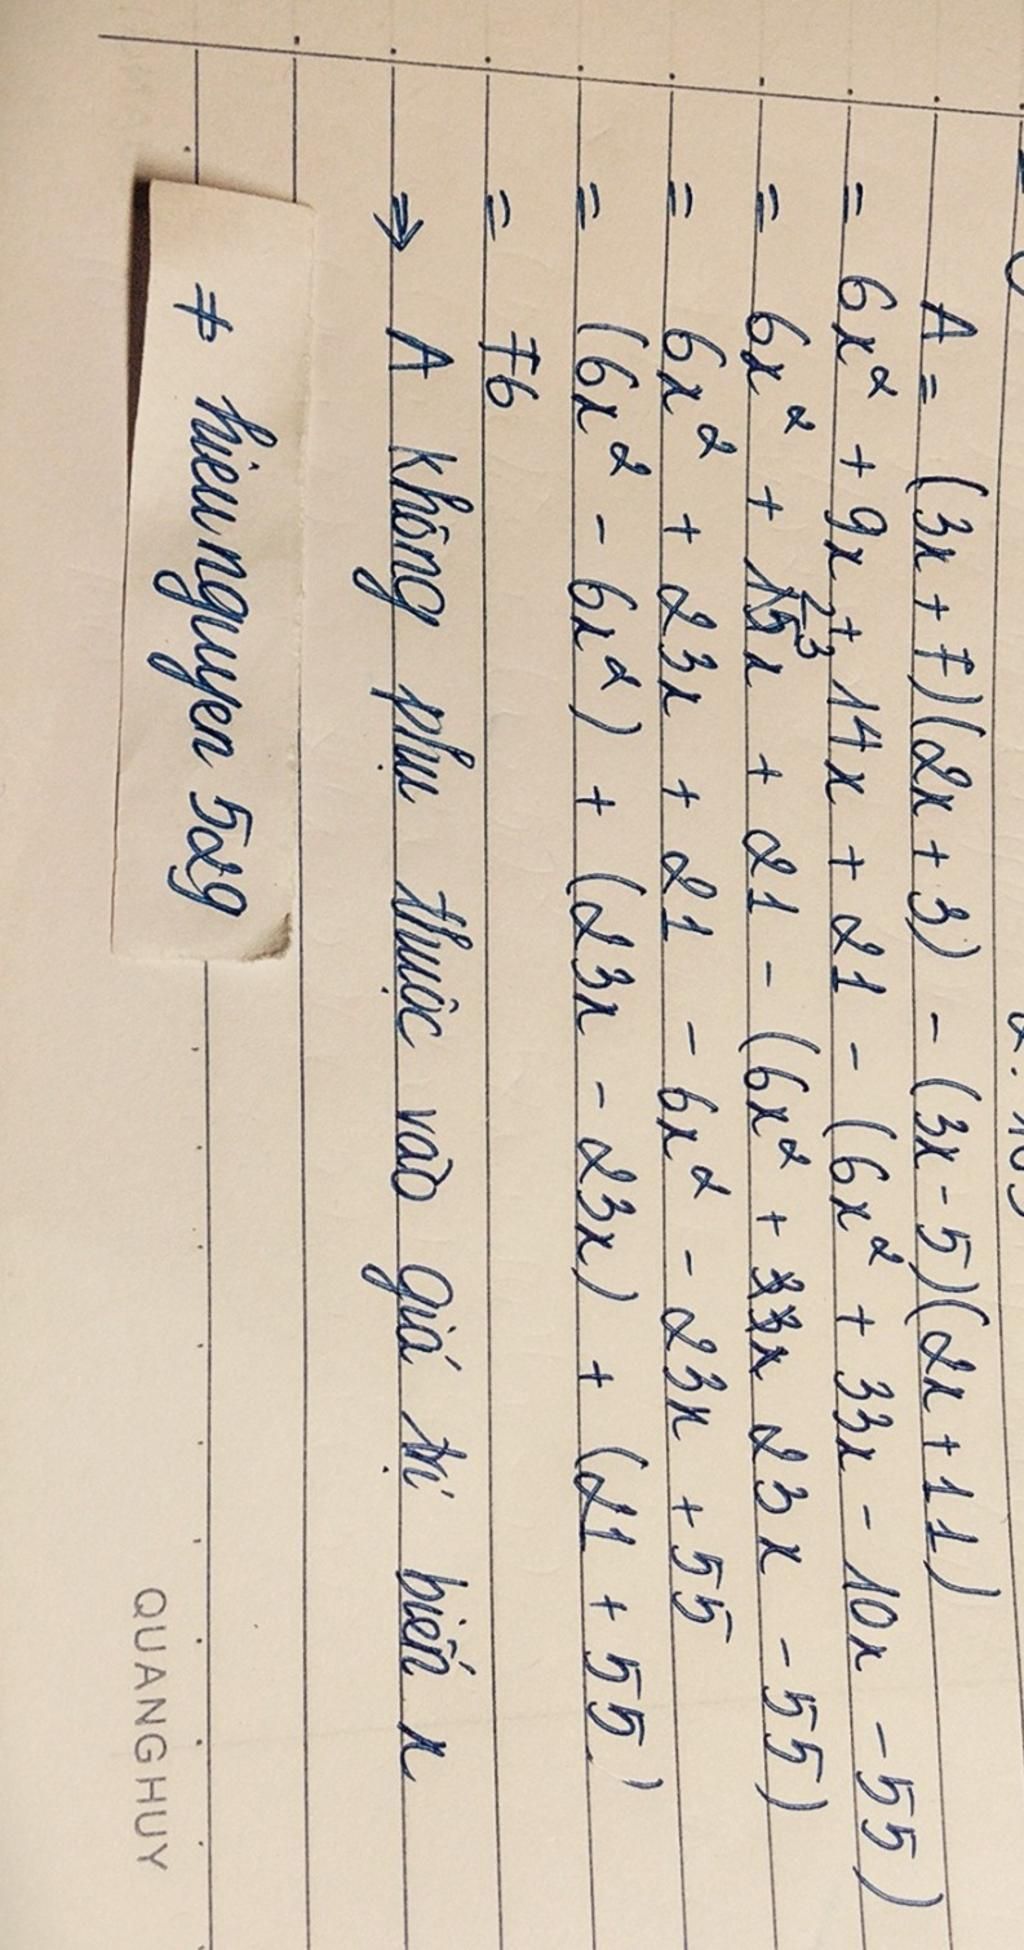 A = (3x + 7)(2x + 3) - (3x - 5)(2x + 11)
= 6x² + 9x + 14x + 21 - (6x² + 33x - 10x - 55)
= 6x² + 23x + 21 - (6x² + 23x - 55)
= 6x² + 23x + 21 - 6x² - 23x + 55
= (6x² - 6x²) + (23x - 23x) + (21 + 55)
= 76
⇒ A không phụ thuộc vào giá trị biến x
⇒ hieunguyen 529
QUANGHUY